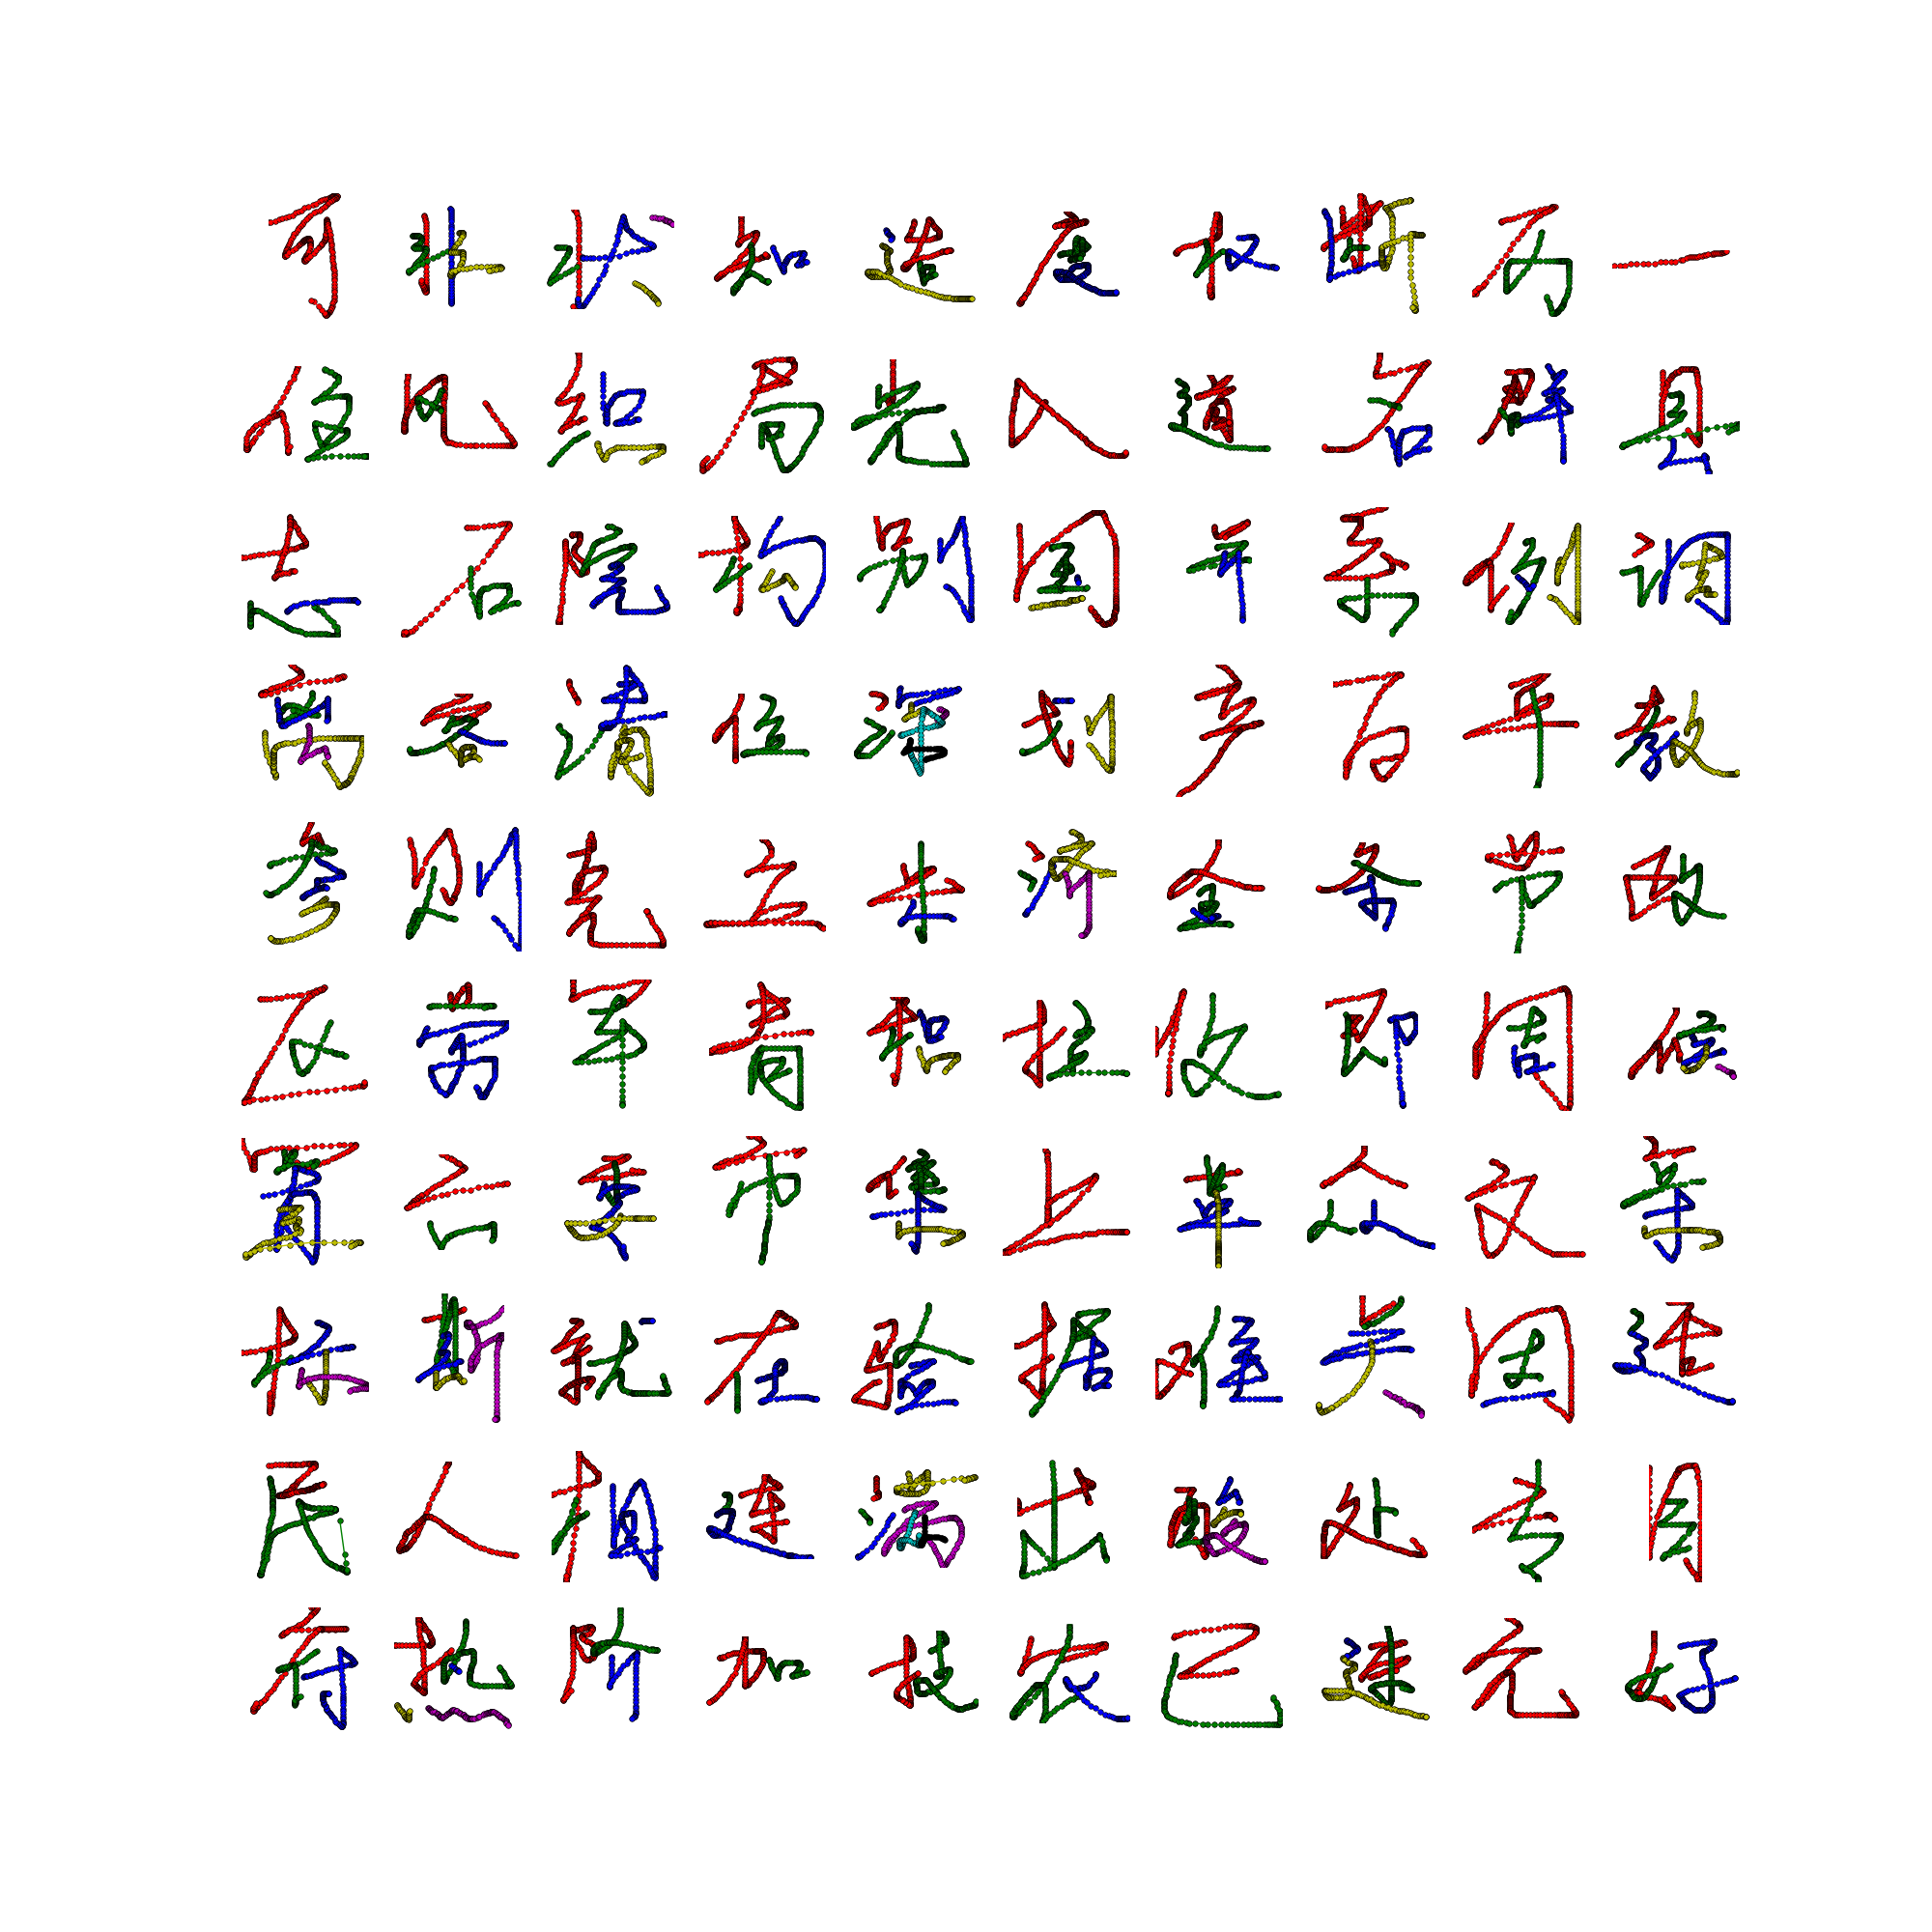 可非状知造度权断历一
值风织局光入道名群县
志石院构别国并系例调
离容清位深划产百平教
参则克立步济全条节政
压劳军青积拉收即周候
置六委市集上革众文亲
标斯就在验据难关团
民人相连满出酸处专目
府热阶加技农已速元好